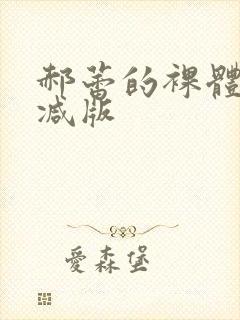 郝蕾的裸體
减版
愛森堡